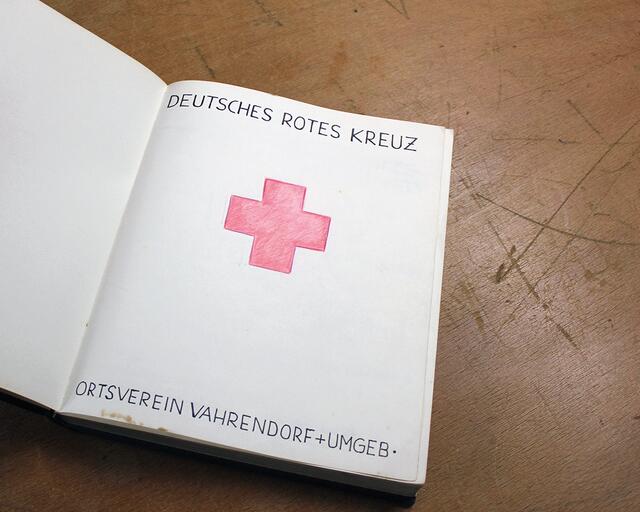 DEUTSCHES ROTES KREUZ
ORTSVEREIN VAHRENDORF+UMGEB.